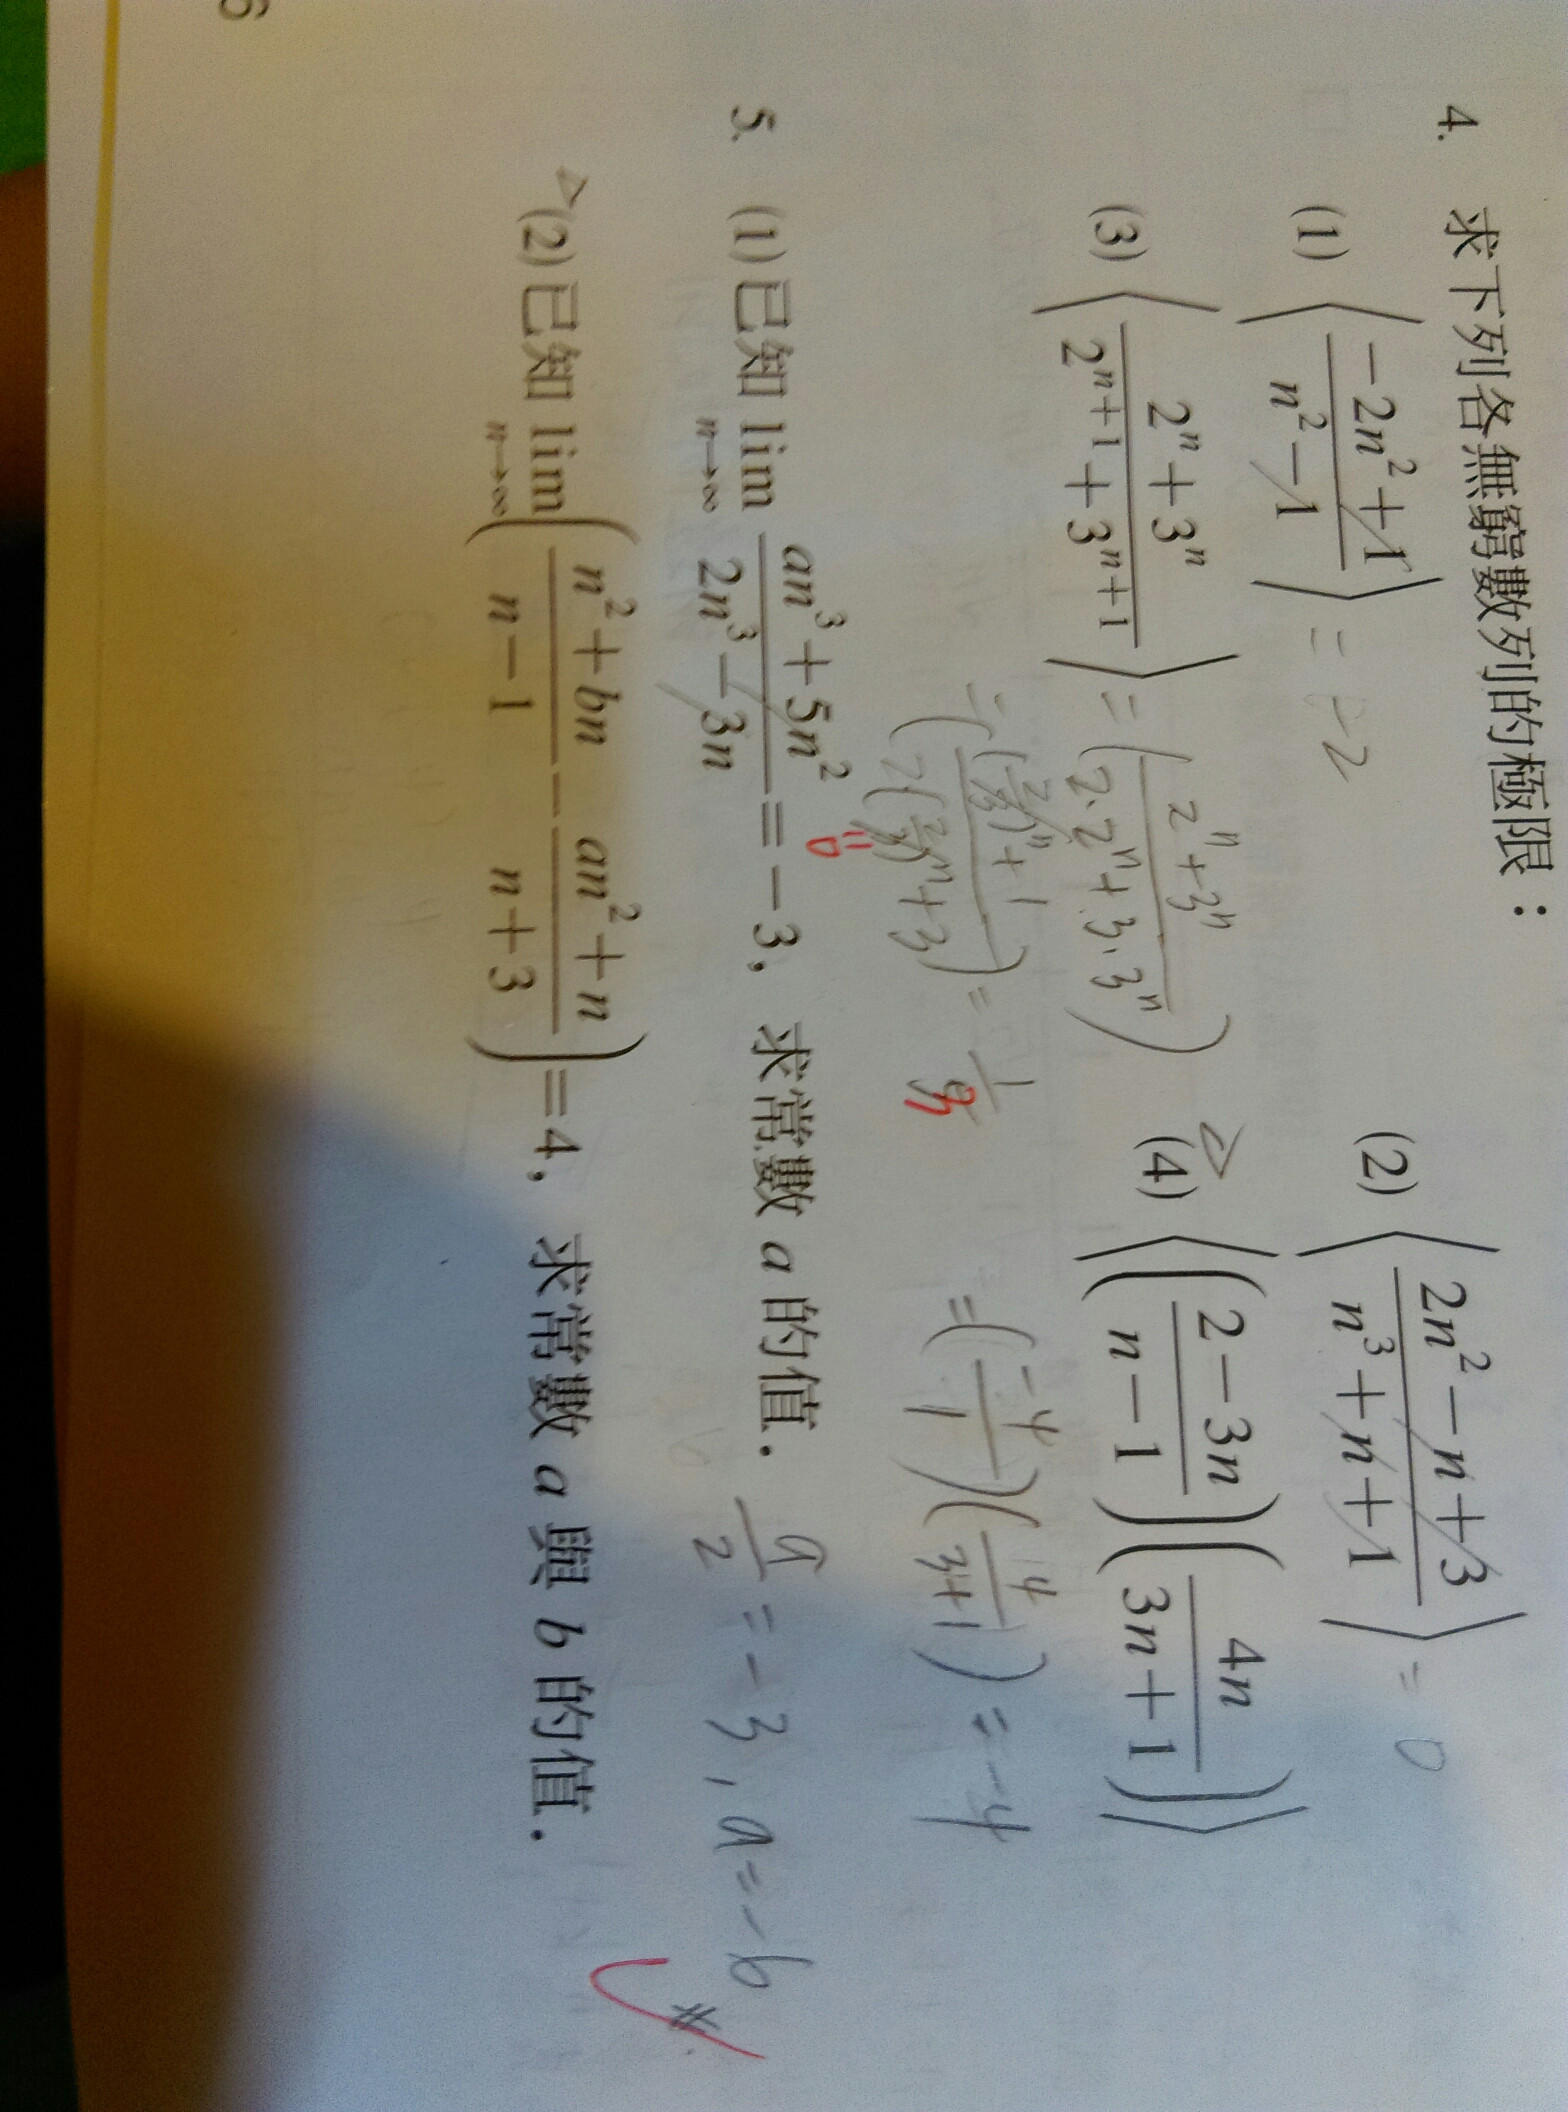 4. 求下列各無窮數列的極限：
(1) ⟨(-2n²+1)/(n²-1)⟩ = -2
(2) ⟨(2n²-n+3)/(n³+n+1)⟩ = 0
(3) ⟨(2ⁿ+3ⁿ)/(2ⁿ⁺¹+3ⁿ⁺¹)⟩ = ((2ⁿ+3ⁿ)/(2·2ⁿ+3·3ⁿ))
= (((2/3)ⁿ+1)/(2(2/3)ⁿ+3)) = 1/3
"0
△(4) ⟨((2-3n)/(n-1))(4n/(3n+1))⟩
= (-4/1)(4/(3+1)) = -4
5. (1) 已知 lim n→∞ (an³+5n²)/(2n³-3n) = -3, 求常數 a 的值. a/2 = -3, a = -6 #
△(2) 已知 lim n→∞ ((n²+bn)/(n-1) - (an²+n)/(n+3)) = 4, 求常數 a 與 b 的值.
6